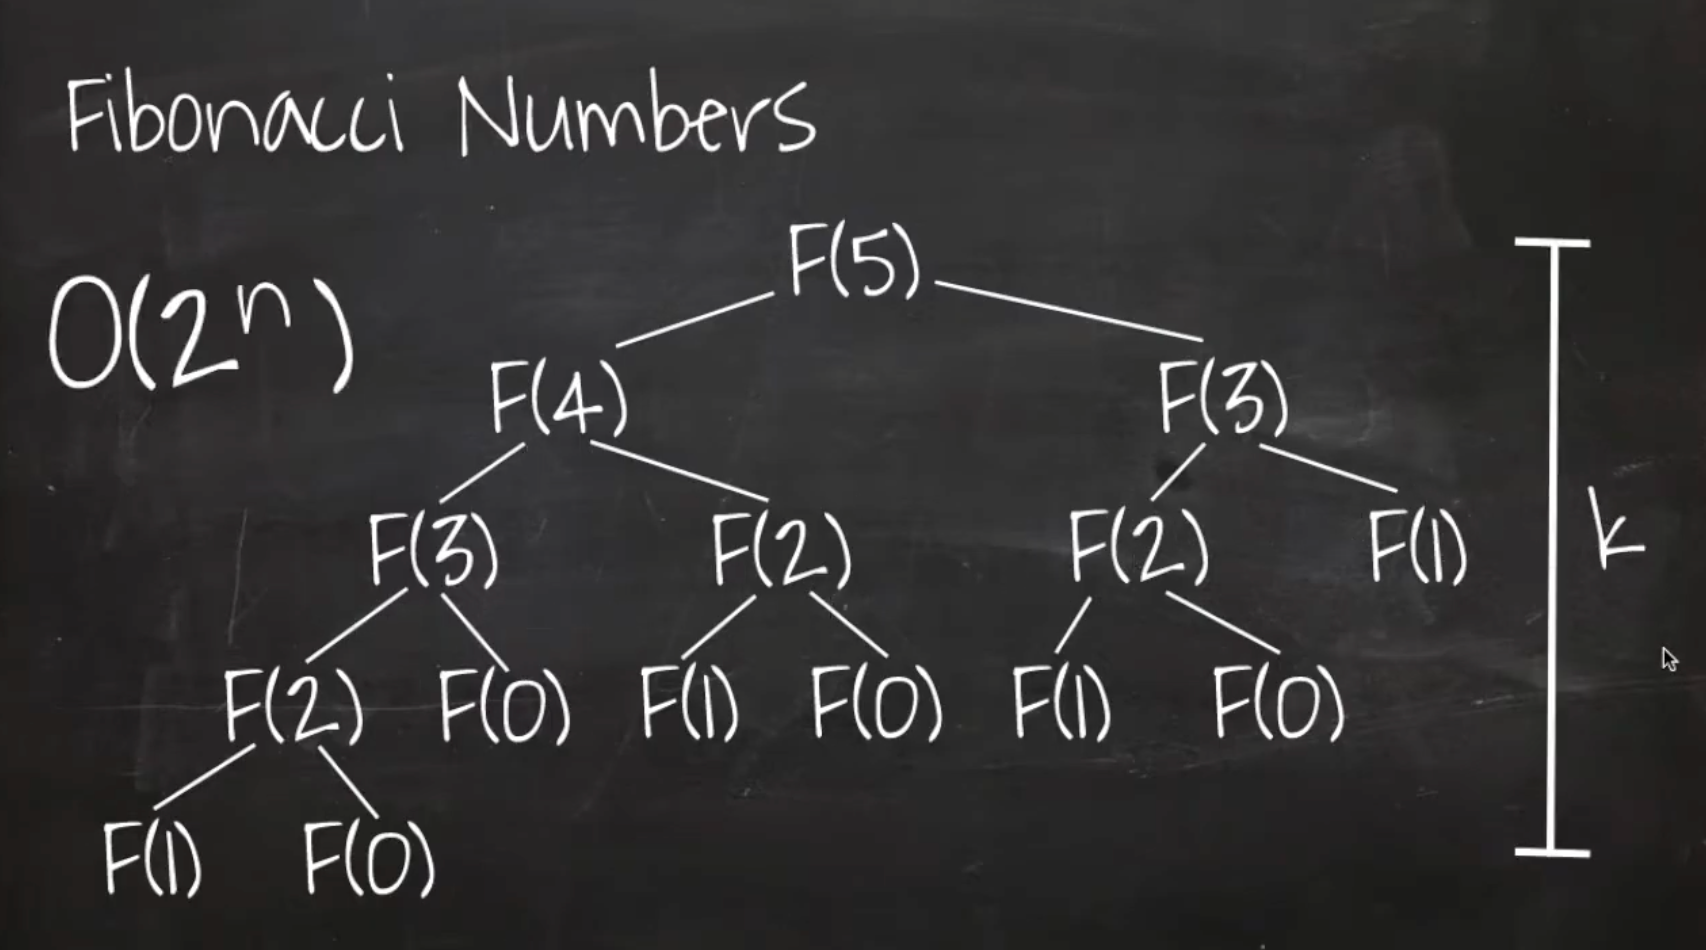 Fibonacci Numbers
F(5)
O(2ⁿ)
F(4) F(3)
F(3) F(2) F(2) F(1)
k
F(2) F(0) F(1) F(0) F(1) F(0)
F(1) F(0)